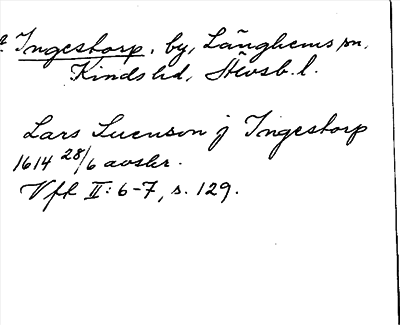 Ingestorp, by, Länghems sn,
Kinds hd, Älvsb. l.
Lars Suenson j Ingestorp
1614 28/6 avskr.
Vfl II: 6-7, s. 129.